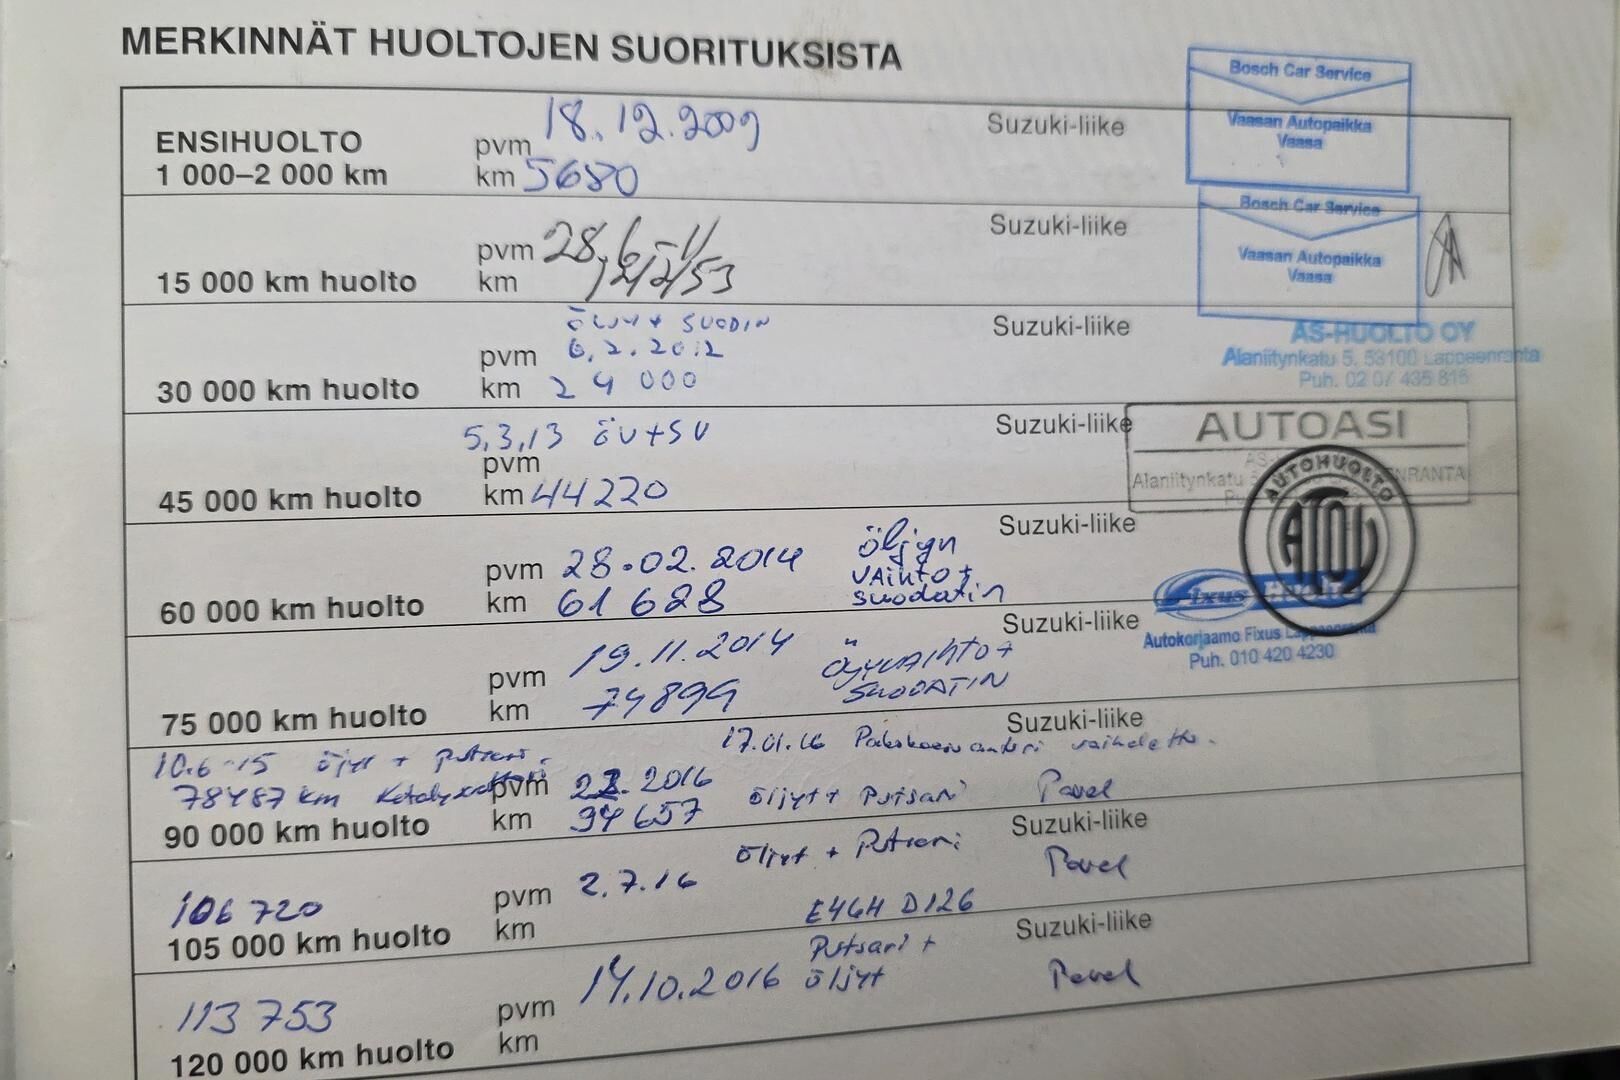 MERKINNÄT HUOLTOJEN SUORITUKSISTA
ENSIHUOLTO
1 000–2 000 km
pvm 18.12.2009
km 5680
Suzuki-liike
Bosch Car Service
Vaasan Autopaikka
Vaasa
15 000 km huolto
pvm 28.6
km
Suzuki-liike
Bosch Car Service
Vaasan Autopaikka
Vaasa
30 000 km huolto
SUODIN
pvm 6.2.2012
km 24 000
Suzuki-liike
AS-HUOLTO OY
Alaniitynkatu 5, 53100 Lappeenranta
Puh. 02 07 435 815
45 000 km huolto
5,3,13 öv+sv
pvm
km 44220
Suzuki-liike
AUTOASI
Alaniitynkatu
60 000 km huolto
pvm 28.02.2014
km 61 628
öljyn
vaihto +
suodatin
Suzuki-liike
AUTOHUOLTO
ATOY
75 000 km huolto
pvm 19.11.2014
km 74899
SUODATIN
Suzuki-liike
Fixus
Autokorjaamo Fixus Lappeenranta
Puh. 010 420 4230
10.6-15 öljyt +
78487 km
90 000 km huolto
17.01.16
pvm 2016
km 94 657
öljyt + Putsari
Suzuki-liike
Pavel
106 720
105 000 km huolto
pvm 2.7.16
km
öljyt + Putsari
Suzuki-liike
Pavel
113 753
120 000 km huolto
pvm 14.10.2016
km
E46H D126
Putsari +
öljyt
Suzuki-liike
Pavel